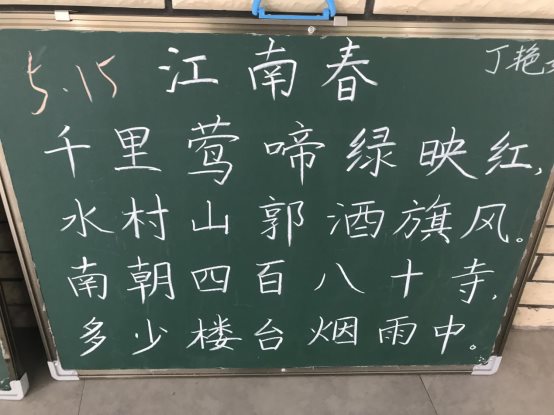 5.15 江南春 丁艳
千里莺啼绿映红,
水村山郭酒旗风。
南朝四百八十寺,
多少楼台烟雨中。